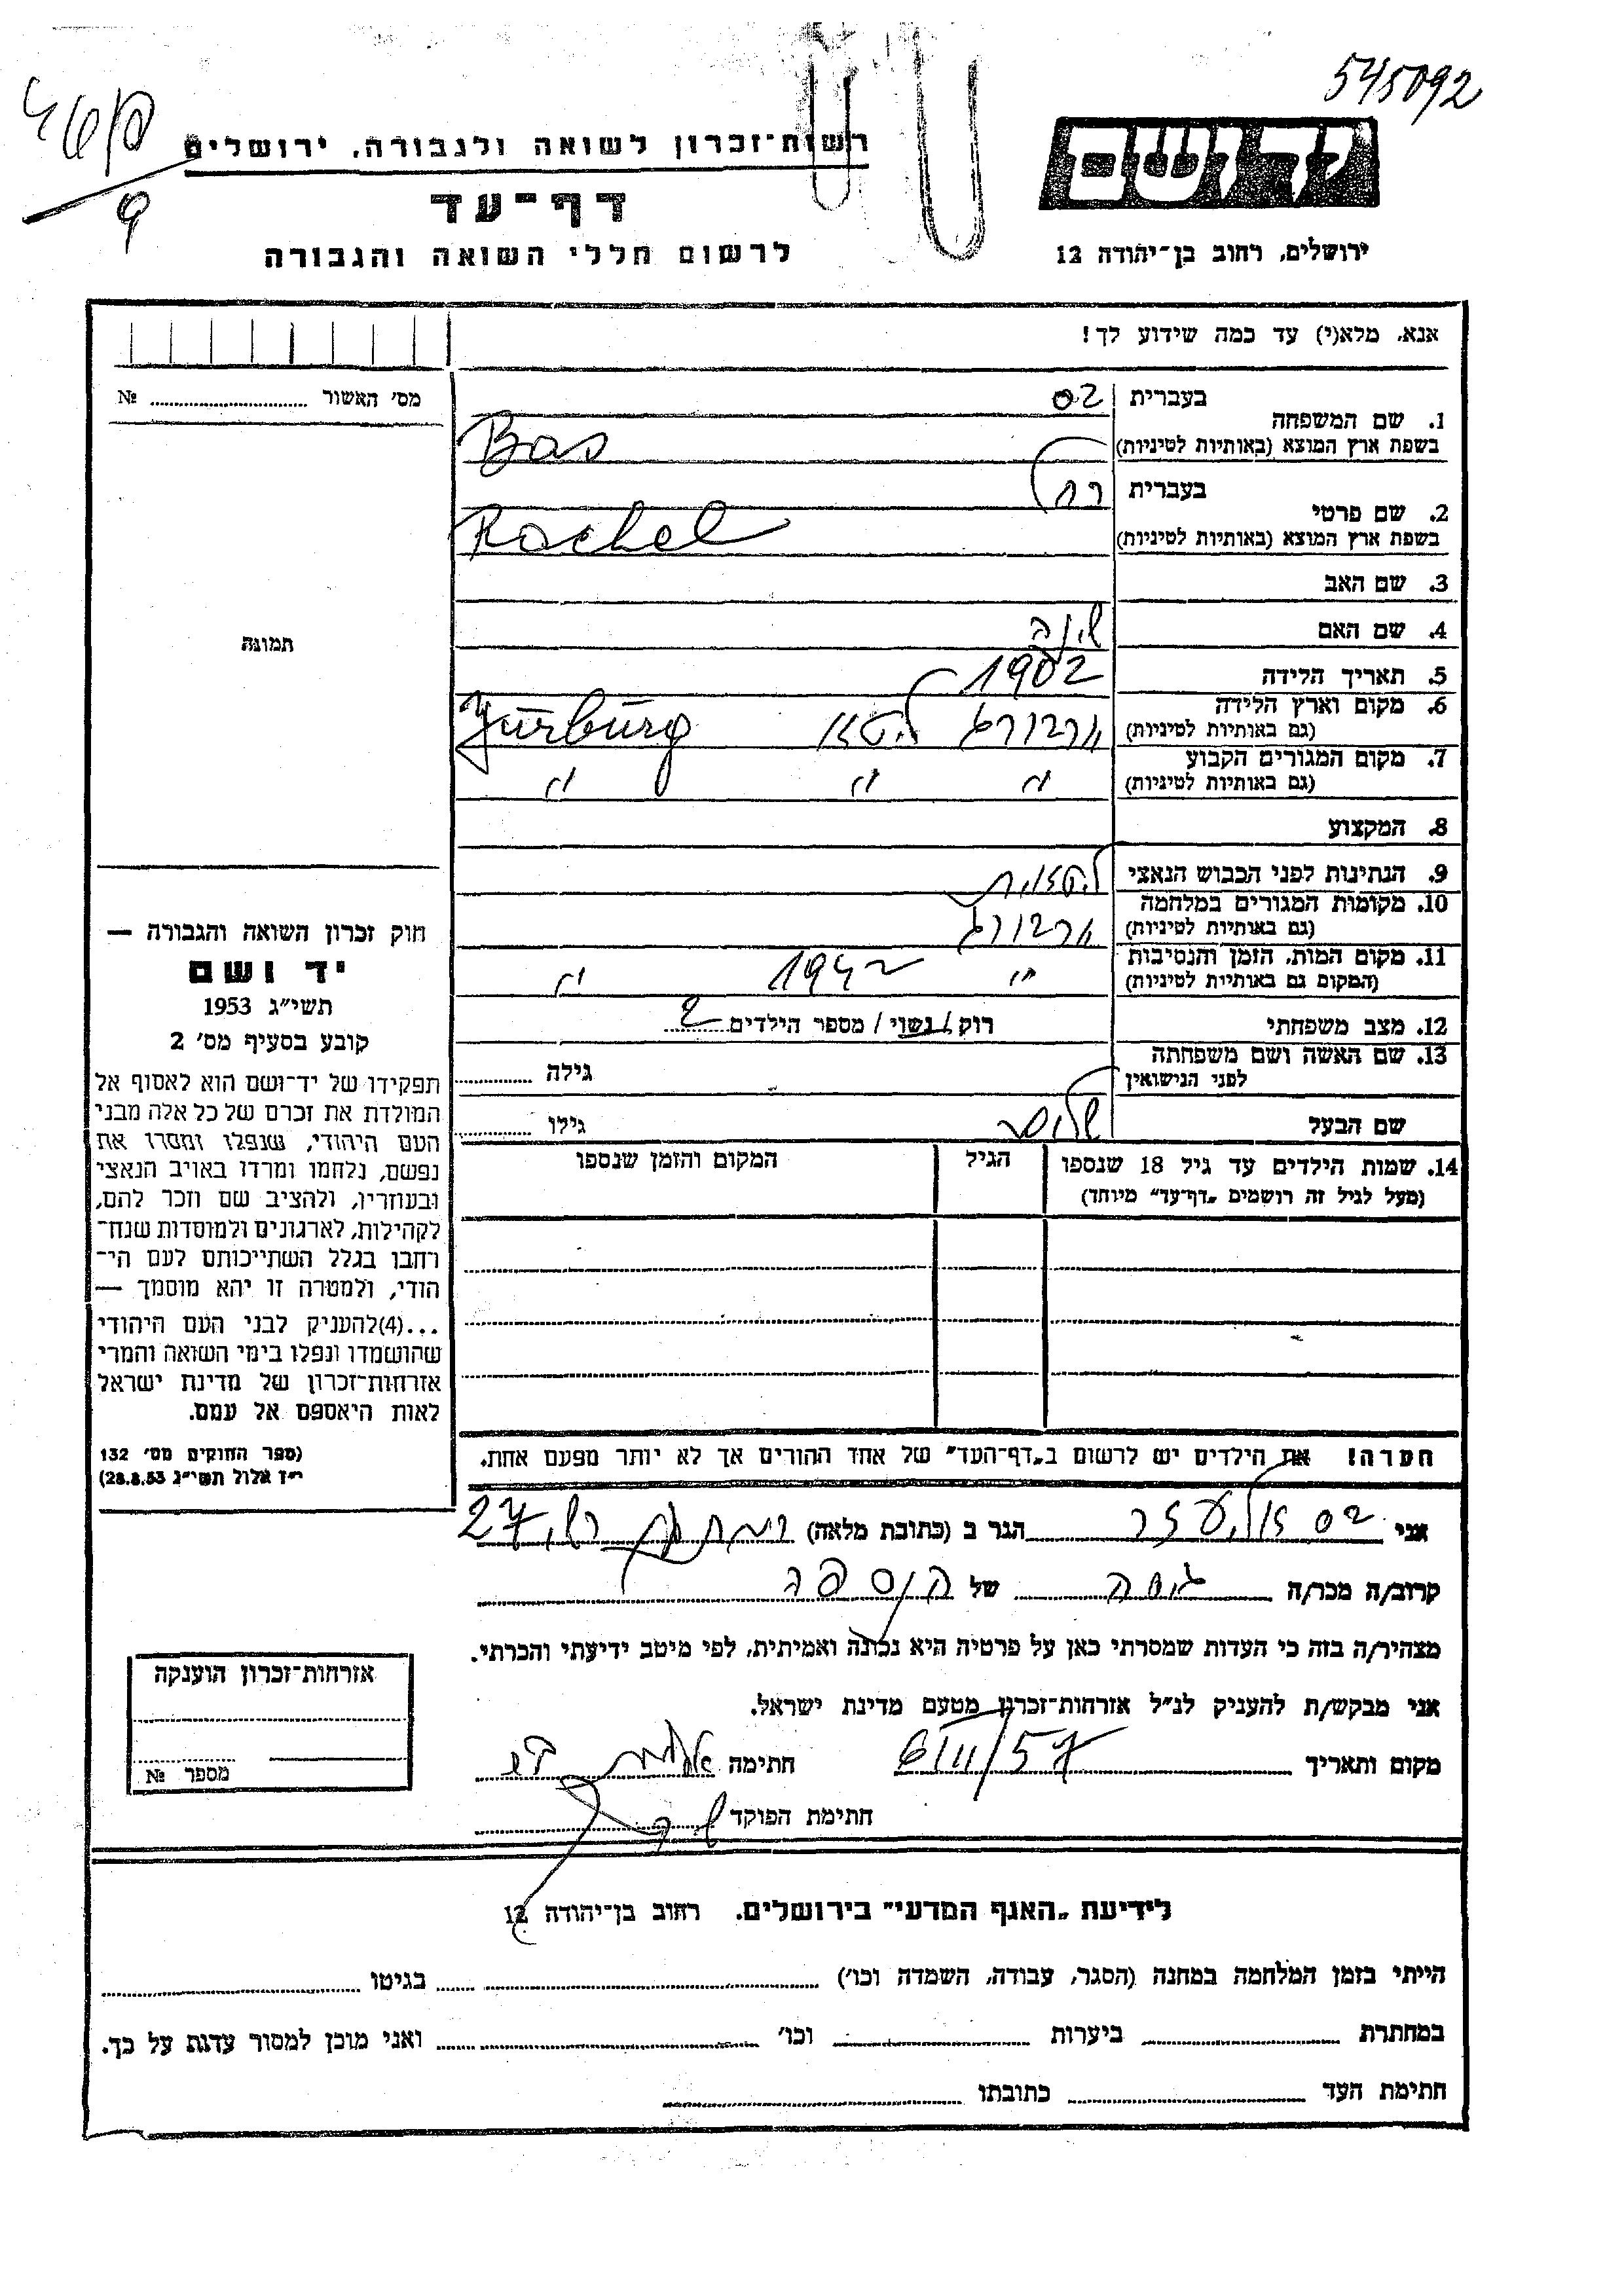 545092
יד ושם
ירושלים, רחוב בן־יהודה 12
רשות־זכרון לשואה ולגבורה, ירושלים
דף־עד
לרשום חללי השואה והגבורה
9
אנא, מלא(י) עד כמה שידוע לך!
מס' האשור № 
1. שם המשפחה בעברית בס
בשפת ארץ המוצא (באותיות לטיניות) Bas
2. שם פרטי בעברית רחל
בשפת ארץ המוצא (באותיות לטיניות) Rachel
3. שם האב
4. שם האם שינה
5. תאריך הלידה 1902
6. מקום וארץ הלידה (גם באותיות לטיניות) יורבורג ליטא Yurburg
7. מקום המגורים הקבוע (גם באותיות לטיניות) " " "
8. המקצוע
9. הנתינות לפני הכבוש הנאצי ליטאית
10. מקומות המגורים במלחמה (גם באותיות לטיניות) יורבורג
11. מקום המות, הזמן והנסיבות (המקום גם באותיית לטיניות) " 1942 "
12. מצב משפחתי רוק / נשוי / מספר הילדים 2
13. שם האשה ושם משפחתה לפני הנישואין גילה
שם הבעל גילו
14. שמות הילדים עד גיל 18 שנספו הגיל המקום והזמן שנספו
(מעל לגיל זה רושמים „דף־עד" מיוחד)
הערה! את הילדים יש לרשום ב„דף־העד" של אחד ההורים אך לא יותר מפעם אחת.
תמונה
חוק זכרון השואה והגבורה —
יד ושם
תשי"ג 1953
קובע בסעיף מס' 2
תפקידו של יד־ושם הוא לאסוף אל
המולדת את זכרם של כל אלה מבני
העם היהודי, שנפלו ומסרו את
נפשם, נלחמו ומרדו באויב הנאצי
ובעוזריו, ולהציב שם וזכר להם,
לקהילות, לארגונים ולמוסדות שנח־
רחבו בגלל השתייכותם לעם הי־
הודי, ולמטרה זו יהא מוסמך —
...(4)להעניק לבני העם היהודי
שהושמדו ונפלו בימי השואה והמרי
אזרחות־זכרון של מדינת ישראל
לאות היאספם אל עמם.
(ספר החוקים מס' 132
י"ז אלול תשי"ג 28.8.53)
אני בס אליעזר הגר ב (כתובת מלאה) רמת גן 27
קרוב/ה מכר/ה גיסה של הנספה
מצהיר/ה בזה כי העדות שמסרתי כאן על פרטיה היא נכונה ואמיתית, לפי מיטב ידיעתי והכרתי.
אני מבקש/ת להעניק לנ"ל אזרחות־זכרון מטעם מדינת ישראל.
מקום ותאריך 6/II/57 חתימה
חתימת הפוקד
אזרחות־זכרון הוענקה
מספר №
לידיעת „האגף המדעי" בירושלים. רחוב בן־יהודה 12
הייתי בזמן המלחמה במחנה (הסגר, עבודה, השמדה וכו') בגיטו
במחתרת ביערות וכו' ואני מוכן למסור עדות על כך.
חתימת העד כתובתו